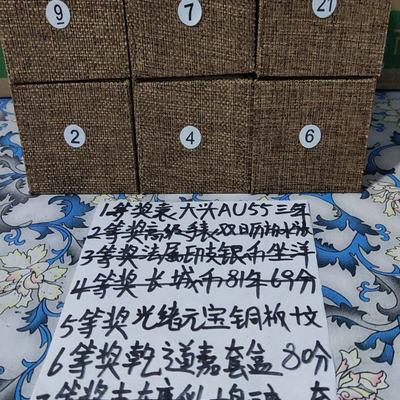 9
7
21
2
4
6
1等奖袁大头AU55三年
2等奖高级手表双日历
3等奖法属印支银币坐洋
4等奖长城币81年69分
5等奖光绪元宝铜板十文
6等奖乾道嘉套盒80分